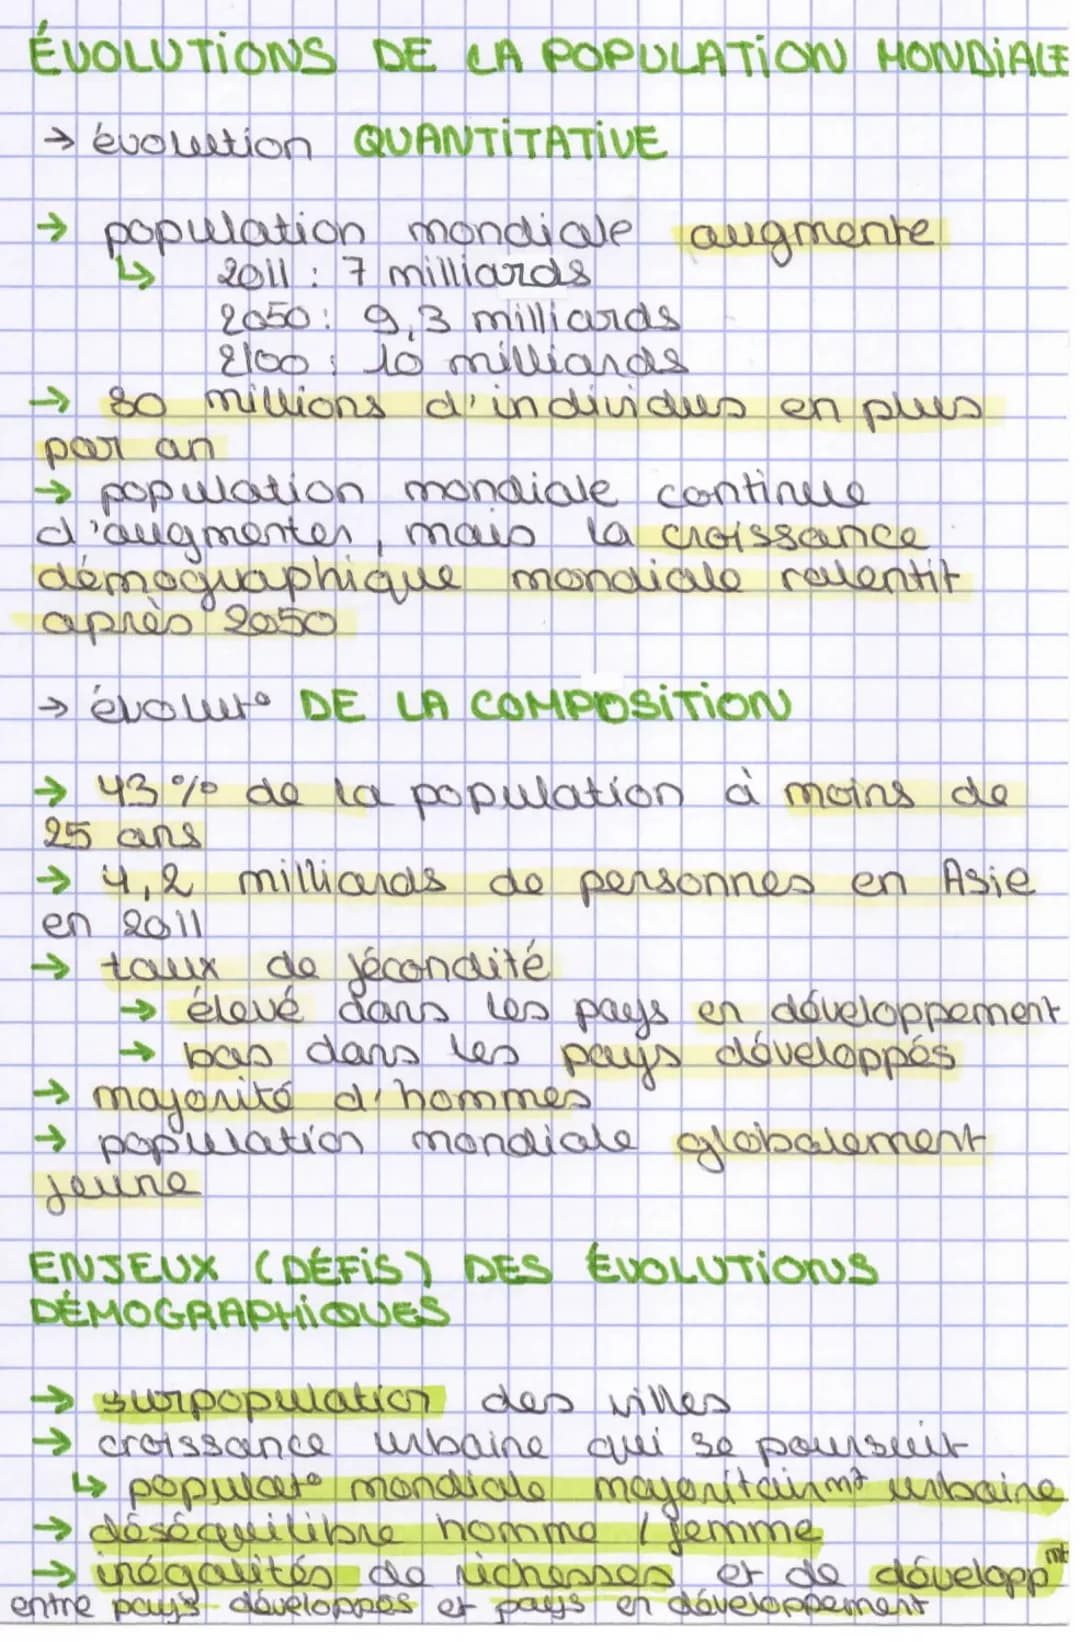 ÉVOLUTIONS DE LA POPULATION MONDIALE
→ évolution QUANTITATIVE
→ population mondiale augmente
↳ 2011 : 7 milliards
2050 : 9,3 milliards
2100 : 10 milliards
→ 80 millions d'individus en plus
par an
→ population mondiale continue
d'augmenter, mais la croissance
démographique mondiale ralentit
après 2050
→ évolut° DE LA COMPOSITION
→ 43 % de la population à moins de
25 ans
→ 4,2 milliards de personnes en Asie
en 2011
→ taux de fécondité
→ élevé dans les pays en développement
→ bas dans les pays développés
→ majorité d'hommes
→ population mondiale globalement
jeune
ENJEUX (DÉFIS) DES ÉVOLUTIONS
DÉMOGRAPHIQUES
→ surpopulation des villes
→ croissance urbaine qui se poursuit
↳ populat° mondiale majoritairmt urbaine
→ déséquilibre homme / femme
→ inégalités de richesses et de développmt
entre pays développés et pays en développement